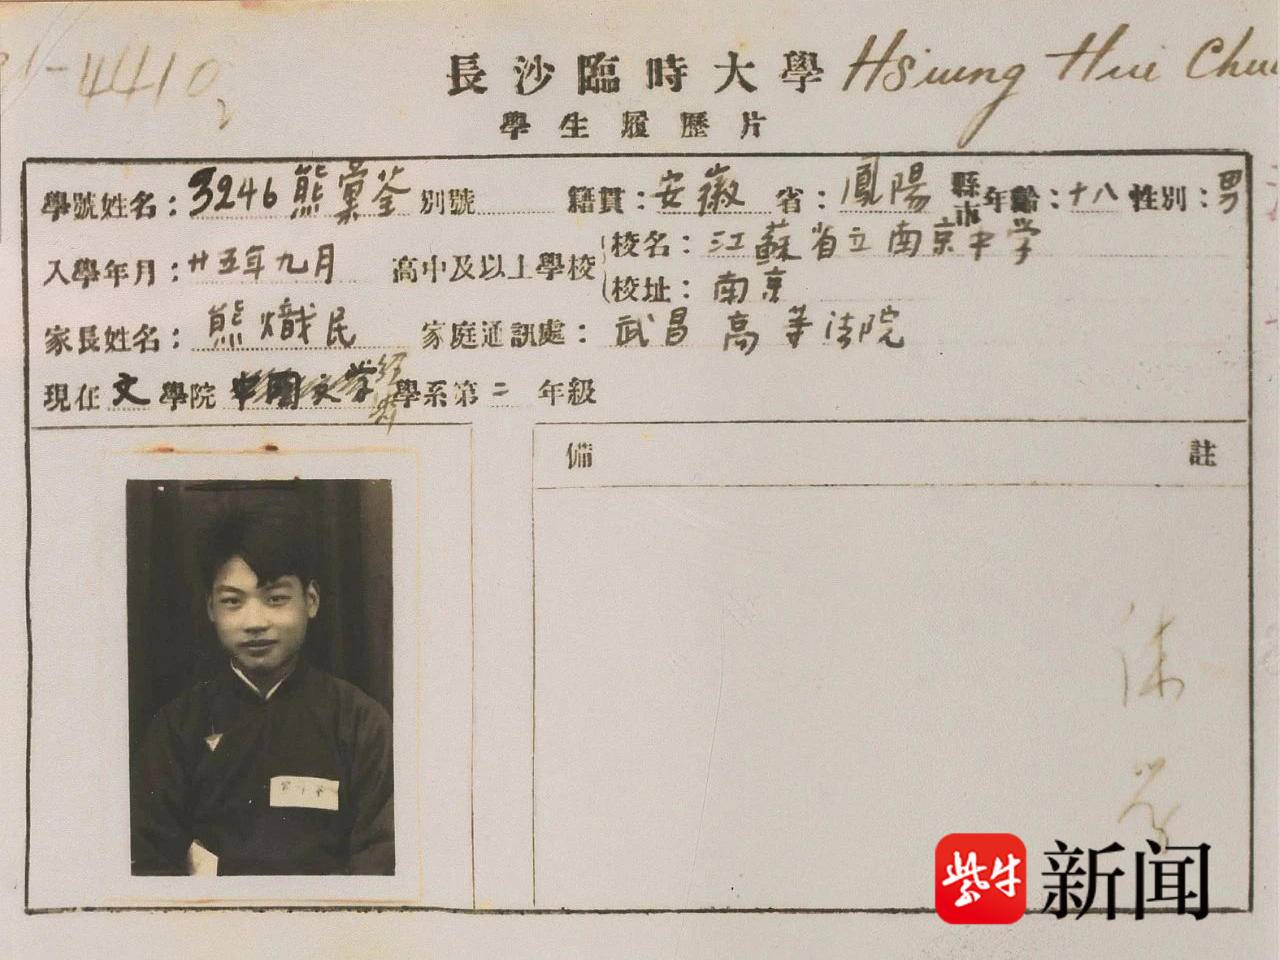 4410
長沙臨時大學 Hsiung Hui
學生履歷片
學號姓名：3246 熊彙荃 別號 籍貫：安徽 省：鳳陽 縣市 年齡：十八 性別：男
入學年月：廿五年九月 高中及以上學校 校名：江蘇省立南京中学
校址：南京
家長姓名：熊熾民 家庭通訊處：武昌 高等法院
現在 文 學院 中國文学 學系第二 年級
備 註
紫牛 新闻